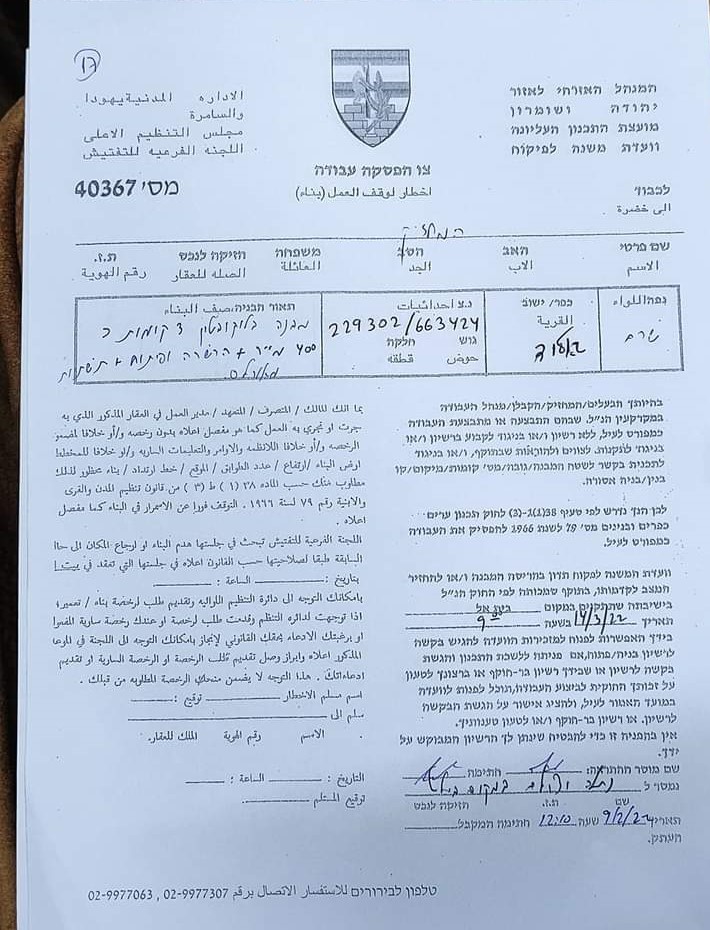 17
המנהל האזרחי לאזור
יהודה ושומרון
מועצת התכנון העליונה
וועדת משנה לפיקוח
الاداره المدنية يهودا
والسامرة
مجلس التنظيم الاعلى
اللجنه الفرعيه للتفتيش
צו הפסקה עבודה
اخطار لوقف العمل (بناء)
מס' 40367
לכבוד
الى حضرة
המחזיק
שם פרטי האב הסב משפחה חזיקה לנכס ת.ז.
الاسم الاب الجد العائلة الصله للعقار رقم الهوية
נפה/הלוואה
כפר/ ישוב
القرية
נ.צ احداثيات
229302/663424
גוש חלקה
حوض قطعه
תאור הבניה/وصف البناء
400 מ"ר + הרשרה ופיתוח + תשתיות
בהיותך הבעלים/המחזיק/הקבלן/מנהל העבודה
במקרקעין הנ"ל, שבהם התבצעה או מתבצעת העבודה
כמפורט לעיל, ללא רשיון ו/או בניגוד לקבוע ברשיון ו/או
בניגוד לתקנות, לצווים ולהוראות שבתוקף, ו/או בניגוד
לתכנית בקשר לשטח המבנה/גובה/מס' קומות/מיקום/קו
בנין/בניה אסורה.
לכן הנך נדרש לפי סעיף 38(1)(ג-3) לחוק תכנון ערים
כפרים ובנינים מס' 79 לשנת 1966 להפסיק את העבודה
כמפורט לעיל.
וועדת המשנה לפקוח תדון בהריסת המבנה ו/או להחזיר
המצב לקדמותו, בתוקף סמכותה לפי החוק הנ"ל
בישיבתה שתתקיים במקום בית אל
תאריך 14/3/22 בשעה 9
בידך האפשרות לפנות למזכירות הוועדה להגיש בקשה
לרשיון בניה/פתוח, אם פניתה ללשכת התכנון והגשת
בקשה לרשיון או שבידך רשיון בר-תוקף או ברצונך לטעון
על זכותך החוקית לביצוע העבודה, תוכל לפנות לוועדה
במועד האמור לעיל, ולהציג אישור על הגשת הבקשה
לרשיון, או רשיון בר-תוקף ו/או לטעון טענותיך.
אין בהפניה זו כדי להבטיח שינתן לך הרשיון המבוקש על
ידך.
שם מוסר ההתראה: חתימה
נמסר ל
שם ת.ז. חזיקה לנכס
תאריך 9/2/22 שעה 12:10 חתימת המקבל
העתק.
بما انك المالك / المتصرف / المتعهد / مدير العمل في العقار المذكور الذي به
جرت او تجري به العمل كما هو مفصل اعلاه بدون رخصه و/أو خلافا لمضمون
الرخصه و/أو خلافا للانظمه والاوامر والتعليمات الساريه و/أو خلافا للمخطط
البناء /ارتفاع / عدد الطوابق / الموقع / خط ارتداد / بناء محظور لذلك
مطلوب منك حسب الماده ٣٨ (١) ط (٣) من قانون تنظيم المدن والقرى
والابنية رقم ٧٩ لسنة ١٩٦٦ التوقف فورا عن الاستمرار في البناء كما مفصل
اعلاه .
اللجنه الفرعية للتفتيش تبحث في جلستها هدم البناء او ارجاع المكان الى
السابقة طبقا لصلاحيتها حسب القانون اعلاه في جلستها التي تنعقد في
بتاريخ : الساعة :
بامكانك التوجه الى دائرة التنظيم اللوائيه وتقديم طلب لرخصة بناء / تعمير؛
اذا توجهت لدائره التنظيم وقدمت طلب لرخصة او عندك رخصة سارية
او برغبتك الادعاء بحقك القانوني لإنجاز بامكانك التوجه الى اللجنة في
المذكور اعلاه وابراز وصل تقديم طلب الرخصة او الرخصة السارية او تقديم
ادعاءاتك . هذا التوجه لا يضمن منحك الرخصة المطلوبه من قبلك .
اسم مسلم الاخطار توقيع :
سلم الى
الاسم رقم الهوية الملك للعقار.
التاريخ : الساعة :
توقيع المستلم
טלפון לבירורים للاستفسار الاتصال برقم 02-9977307 , 02-9977063